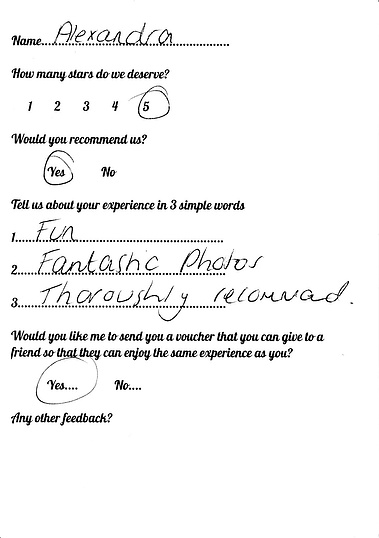 Name....Alexandra
How many stars do we deserve?
1 2 3 4 5
Would you recommend us?
Yes No
Tell us about your experience in 3 simple words
1.....Fun
2.....Fantastic Photos
3.....Thoroughly recommend.
Would you like me to send you a voucher that you can give to a
friend so that they can enjoy the same experience as you?
Yes.... No....
Any other feedback?